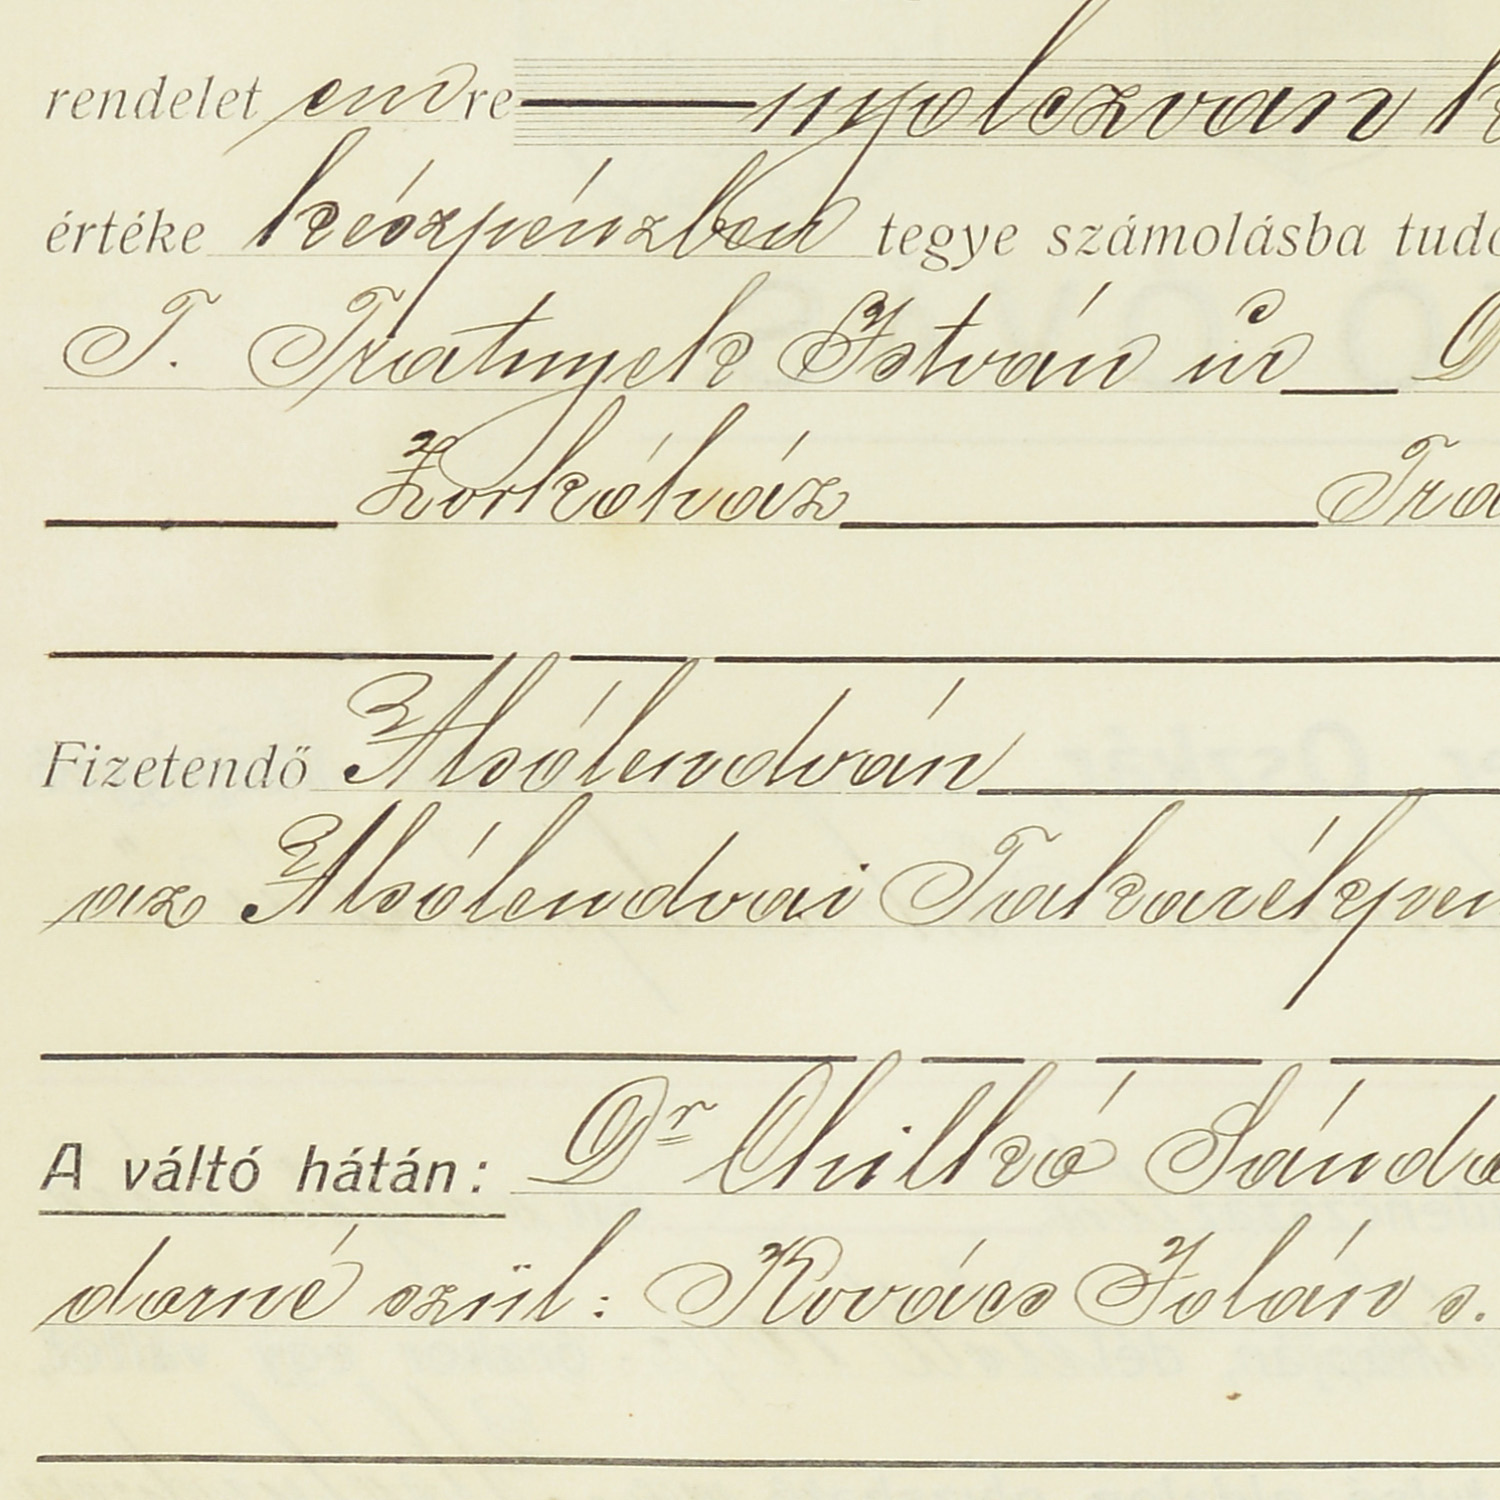 rendelet emre nyolczvan k
értéke készpénzben tegye számolásba tudo
T. Tratnyek István úr D
Zorkóház Tra
Fizetendő Alsólendván
az Alsólendvai Takarékpén
A váltó hátán: Dr Chilkó Sándo
dorné szül: Kovács Jolán s.